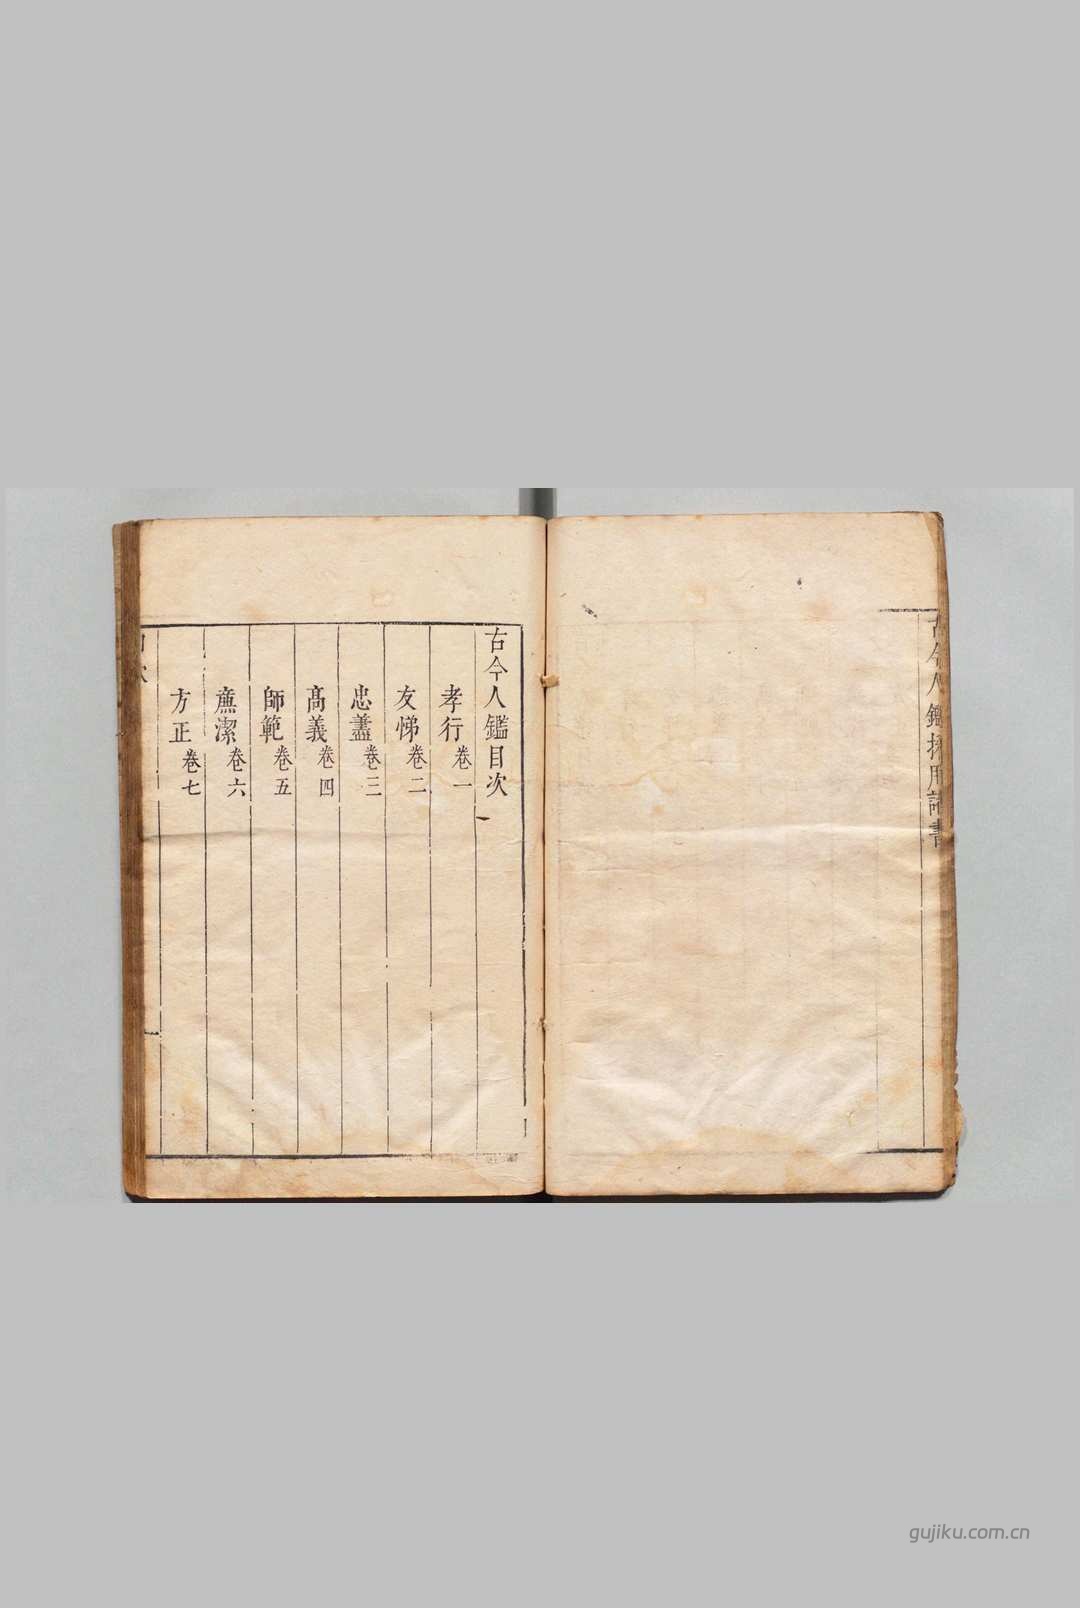 古今人鑑採用諸書
古今人鑑目次
孝行卷一
友悌卷二
忠藎卷三
高義卷四
師範卷五
廉潔卷六
方正卷七
gujiku.com.cn